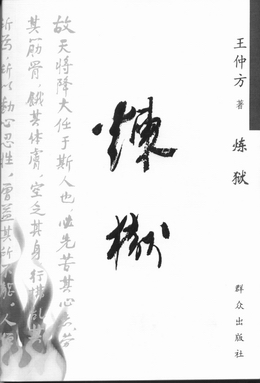 王仲方 著
炼狱
群众出版社
煉獄
故天将降大任于斯人也必先苦其心志劳
其筋骨，饿其体肤，空乏其身，行拂乱其
所为，所以动心忍性，曾益其所不能。人恒